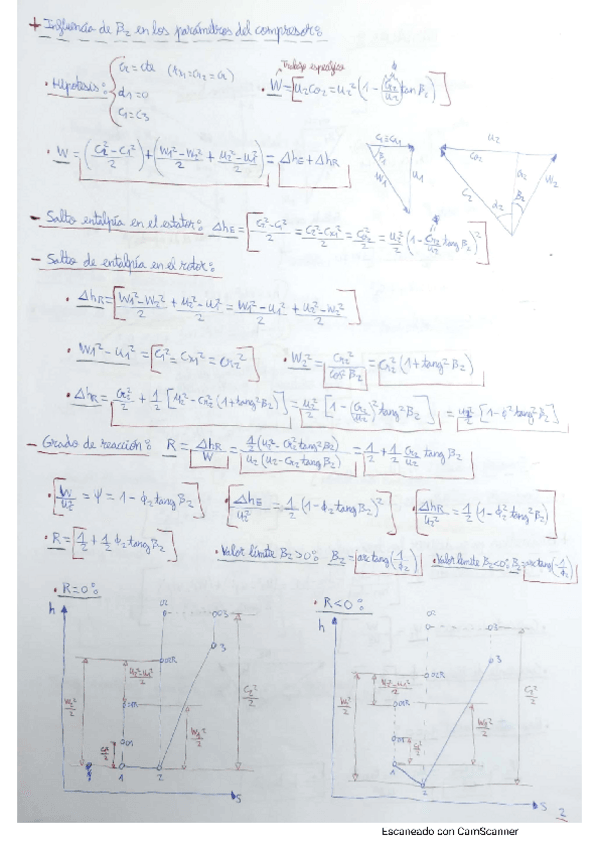 + Influencia de β₂ en los parámetros del compresor:
• Hipótesis: { cr = cte (cr1 = cr2 = cr)
α1 = 0
C1 = C3
Trabajo específico
• W = [u₂cθ₂ = u₂² (1 - (cr₂/u₂) tan β₂)]
• W = ((C₂² - C1²)/2) + ((W1² - W₂²)/2 + (u₂² - u1²)/2) = ΔhE + ΔhR
C1 = Cx1
β1
W1
u1
u₂
cθ₂
C₂
α₂
β₂
W₂
- Salto entalpía en el estator: ΔhE = [(C₂² - C1²)/2 = (C₂² - Cx1²)/2 = Cθ₂²/2 = u₂²/2 (1 - Cr₂/u₂ tang β₂)²]
- Salto de entalpía en el rotor:
• ΔhR = [(W1² - W₂²)/2 + (u₂² - u1²)/2 = (W1² - u1²)/2 + (u₂² - W₂²)/2]
• W1² - u1² = [C1² = Cx1² = cr₂²] • W₂² = Cr₂²/cos² β₂ = Cr₂² (1 + tang² β₂)
• ΔhR = Cr₂²/2 + 1/2 [u₂² - Cr₂² (1 + tang² β₂)] = u₂²/2 [1 - (Cr₂/u₂)² tang² β₂] = u₂²/2 [1 - φ² tang² β₂]
- Grado de reacción: R = ΔhR/W = 1/2 (u₂² - Cr₂² tang² β₂) / u₂ (u₂ - Cr₂ tang β₂) = 1/2 + 1/2 Cr₂/u₂ tang β₂
• [W/u₂² = ψ = 1 - φ₂ tang β₂] • [ΔhE/u₂² = 1/2 (1 - φ₂ tang β₂)²] • [ΔhR/u₂² = 1/2 (1 - φ₂² tang² β₂)]
• R = [1/2 + 1/2 φ₂ tang β₂] • Valor límite β₂ > 0: β₂ = arctang (1/φ₂) • Valor límite β₂ < 0: β₂ = arctang (-1/φ₂)
• R = 0: • R < 0:
h
02
03
3
02R
(u₂² - u1²)/2
01R
W₂²/2
W1²/2
C₂²/2
01
C1²/2
1
2
S
h
02
03
3
02R
(u₂² - u1²)/2
01R
W₂²/2
W1²/2
C₂²/2
01
C1²/2
1
2
S
2
Escaneado con CamScanner